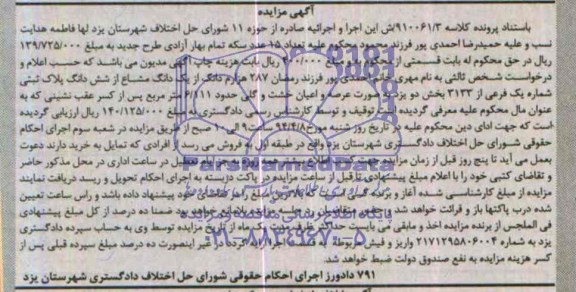 آگهی مزایده
باستناد پرونده کلاسه ۹۱۰۰۶۱/۳/ش این اجرا و اجرائیه صادره از حوزه ۱۱ شورای حل اختلاف شهرستان یزد لها فاطمه هدایت
نسب و علیه حمیدرضا احمدی پور فرزند محمود محکوم علیه تعداد ۱۵ عدد سکه تمام بهار آزادی طرح جدید به مبلغ ۱۳۹/۷۲۵/۰۰۰
ریال در حق محکوم له بابت قسمتی از محکوم به و مبلغ ریال بابت هزینه چاپ آگهی مدیون می باشد که حسب اعلام و
درخواست شخص ثالثی به نام مهری خانی پور فرزند رمضان ۲۸۷ هزارم دانگ از یک دانگ مشاع از شش دانگ پلاک ثبتی
شماره یک فرعی از ۳۱۳۳ بخش دو یزد به صورت عرصه و اعیان خشت و گلی حدود ۶/۱۱۱ متر مربع پس از کسر عقب نشینی که به
عنوان مال محکوم علیه معرفی گردیده است توقیف و توسط کارشناس رسمی دادگستری به مبلغ ۱۴۰/۱۲۵/۰۰۰ ریال ارزیابی گردیده
است که جهت ادای دین محکوم علیه در تاریخ روز شنبه مورخ ۹۴/۴/۸ ساعت ۹ الی ۱۰ صبح از طریق مزایده در شعبه سوم اجرای احکام
حقوقی شورای حل اختلاف دادگستری شهرستان یزد واقع در طبقه اول به فروش می رسد از افرادی که تمایل به خرید دارند دعوت
بعمل می آید تا پنج روز قبل از زمان مزایده در ساعت اداری در محل مذکور حاضر
و تقاضای کتبی خود را با اعلام مبلغ پیشنهادی تا قبل از ساعت مزایده در پاکت دربسته به اجرای احکام تحویل و رسید دریافت نمایند
مزایده از مبلغ کارشناسی شده آغاز و برنده کسی است که بالاترین مبلغ را در تقاضای خود پیشنهاد داده باشد و راس ساعت تعیین
شده درب پاکتها باز و قرائت خواهد شد و ضمنا ده درصد از کل مبلغ پیشنهادی
فی المجلس از برنده مزایده اخذ و مابقی می بایست حداکثر ظرف مدت یک ماه از تاریخ مزایده توسط وی به حساب سپرده دادگستری
یزد به شماره ۲۱۷۱۲۹۵۸۰۶۰۰۴ واریز و فیش مربوطه به اجرا گردد در غیر اینصورت ده درصد مبلغ سپرده قبلی پس از
کسر هزینه مزایده به نفع صندوق دولت ضبط خواهد شد.
۷۹۱ دادورز اجرای احکام حقوقی شورای حل اختلاف دادگستری شهرستان یزد